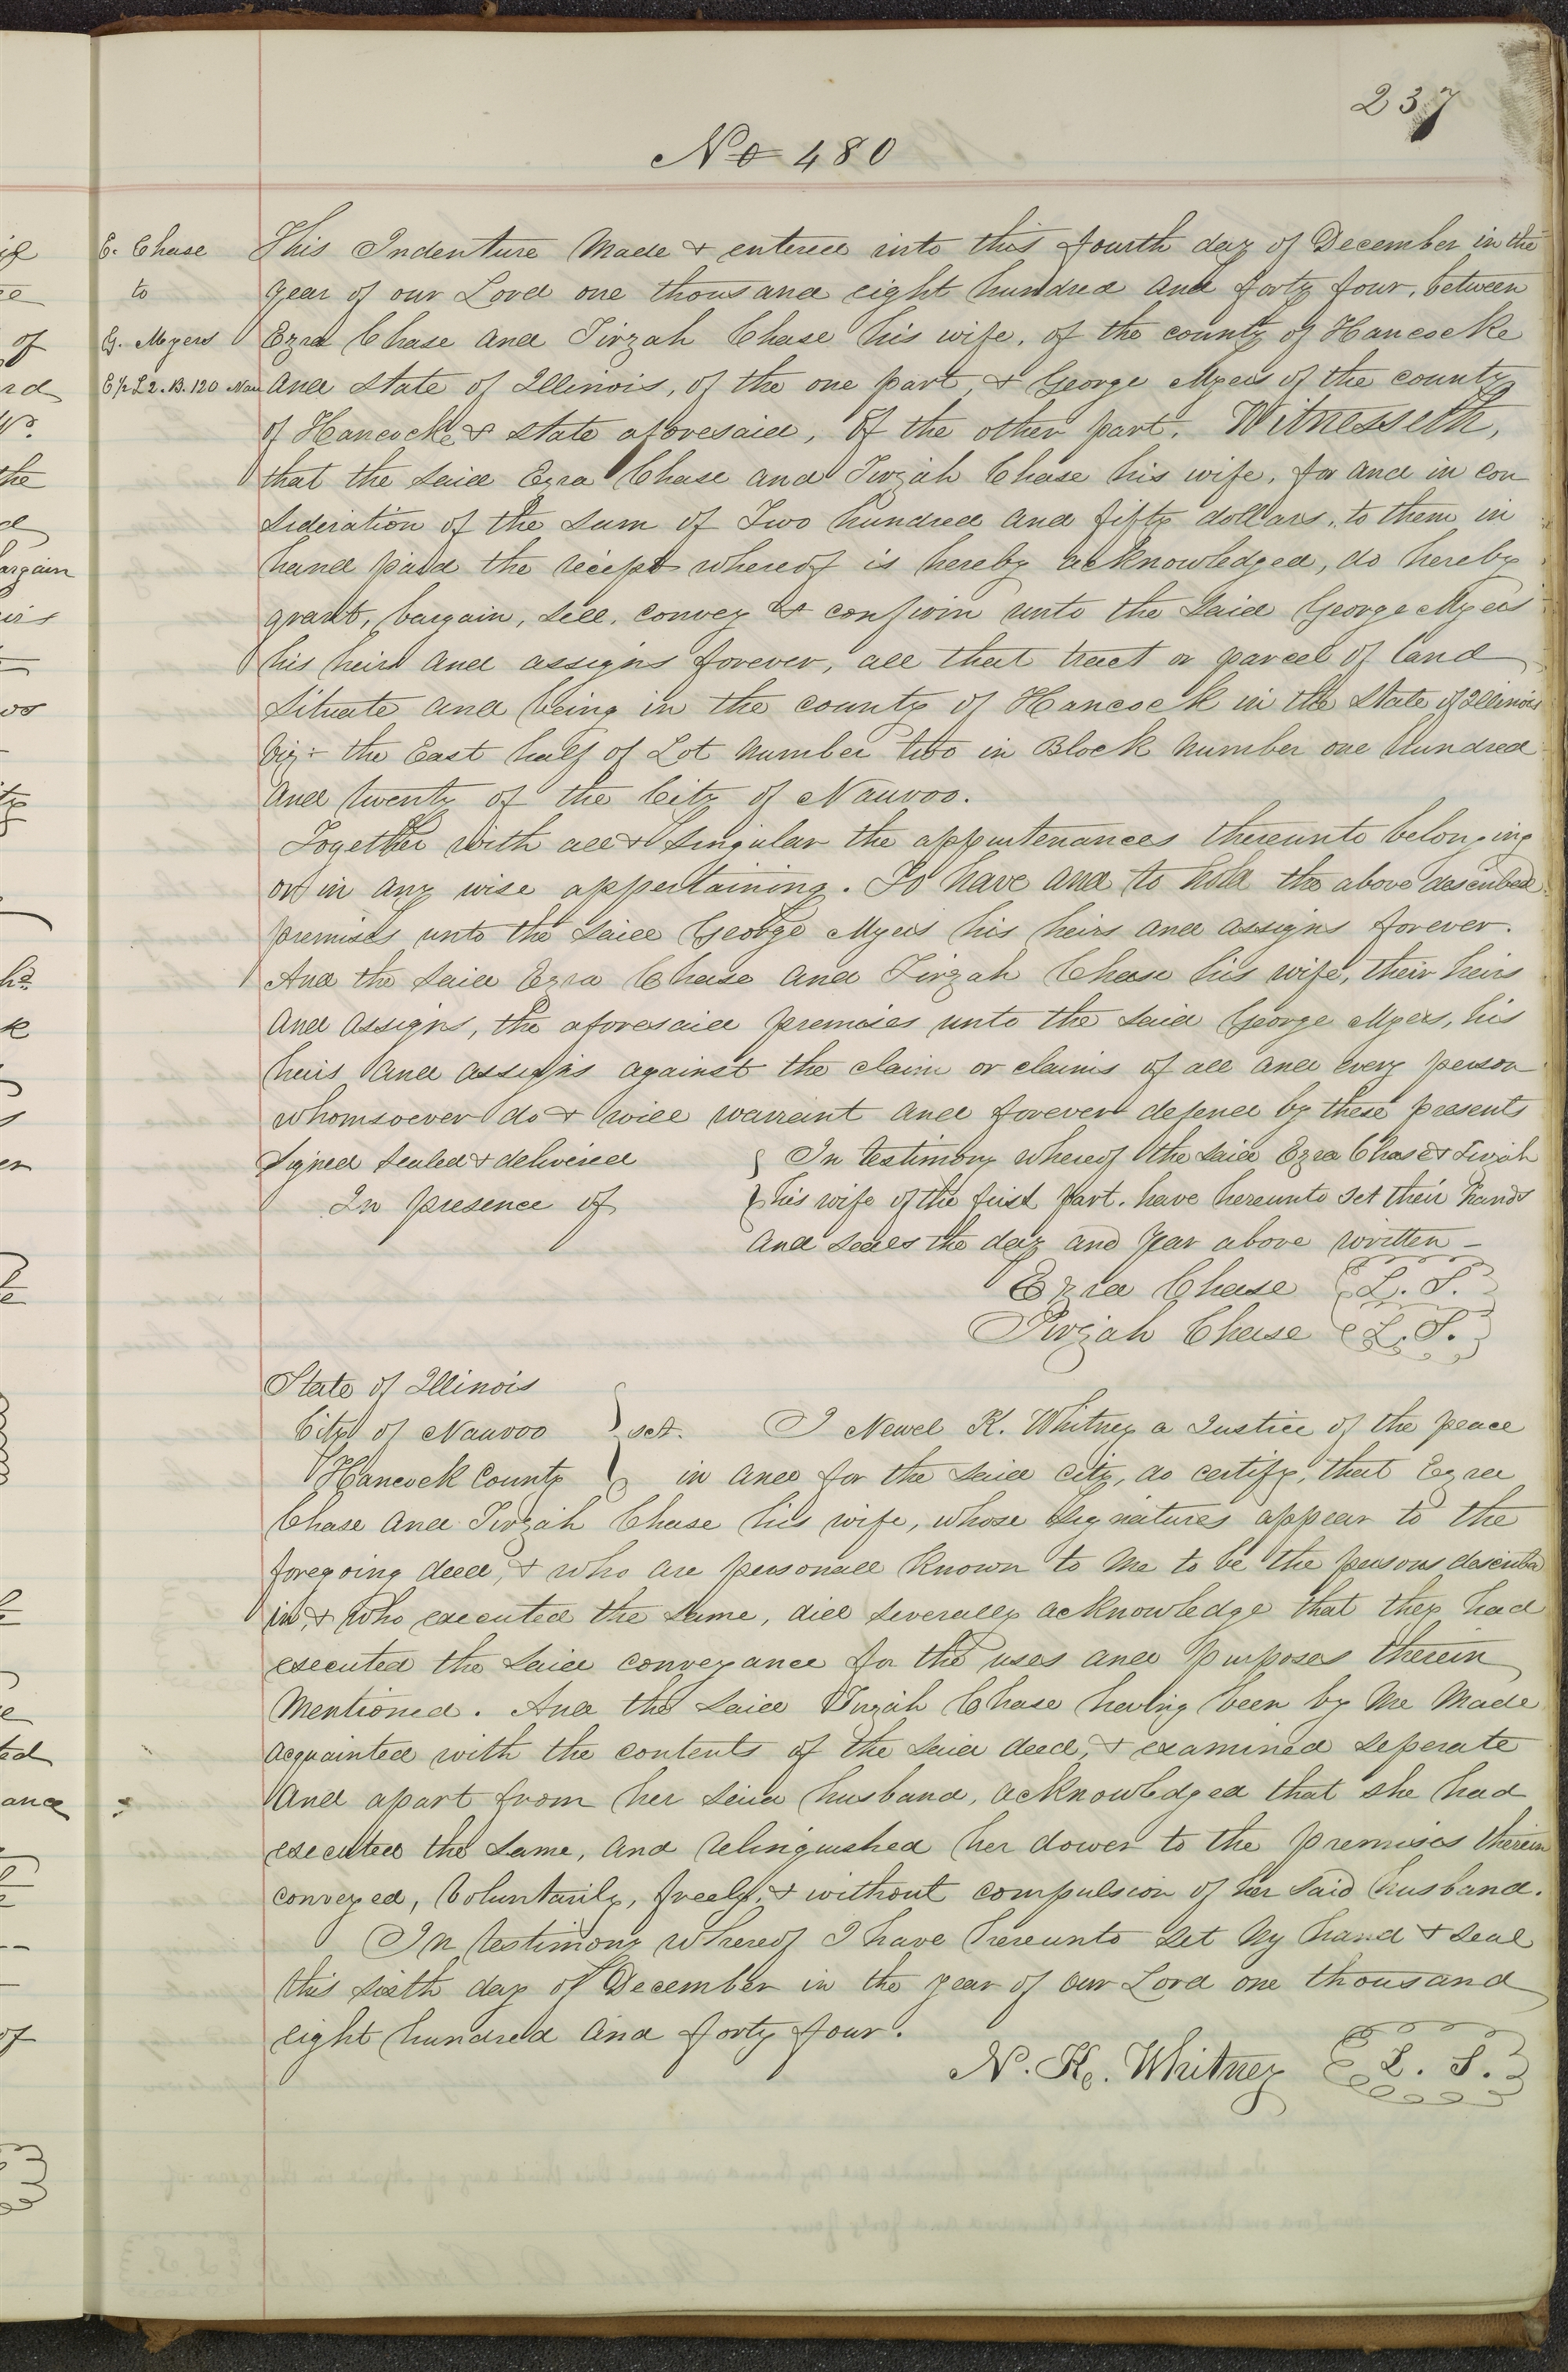 237
No 480
E. Chase
to
G. Myers
E ½ L 2. B. 120 Nau
This Indenture Made & entered into this fourth day of December in the
year of our Lord one thousand eight hundred and forty four, between
Ezra Chase and Tirzah Chase his wife, of the county of Hancocke
and state of Illinois, of the one part, & George Myers of the county
of Hancocke & state aforesaid, of the other part. Witnesseth,
that the said Ezra Chase and Tirzah Chase his wife, for and in con
sideration of the sum of Two hundred and fifty dollars, to them in
hand paid the reciept whereof is hereby acknowledged, do hereby
grant, bargain, sell, convey & confirm unto the said George Myers
his heirs and assigns forever, all that tract or parcel of land
situate and being in the county of Hancock in the State of Illinois
viz: the East half of Lot Number two in Block Number one hundred
and twenty of the City of Nauvoo.
Together with all & singular the appurtenances thereunto belonging
or in any wise appertaining. To have and to hold the above described
premises unto the said George Myers his heirs and assigns forever.
And the said Ezra Chase and Tirzah Chase his wife, their heirs
and assigns, the aforesaid premises unto the said George Myers, his
heirs and assigns against the claim or claims of all and every person
whomsoever do & will warrant and forever defend by these presents
Signed sealed & delivered
In presence of
In testimony whereof the said Ezra Chase & Tirzah
his wife of the first part. have hereunto set their hands
and seals the day and year above written –
Ezra Chase L. S.
Tirzah Chase L. S.
State of Illinois
City of Nauvoo } sct. I Newel K. Whitney a Justice of the peace
Hancock County in and for the said city, do certify, that Ezra
Chase and Tirzah Chase his wife, whose signatures appear to the
foregoing deed, & who are personall known to me to be the persons describd
in, & who executed the same, did severally acknowledge that they had
executed the said conveyance for the uses and purposes therein
Mentioned. And the said Tirzah Chase having been by me made
acquainted with the contents of the said deed, & examined seperate
and apart from her said husband, acknowledged that she had
executed the same, and relinquished her dower to the premises therein
conveyed, voluntarily, freely, & without compulsion of her said husband.
In testimony whereof I have hereunto set my hand & seal
this sixth day of December in the year of our Lord one thousand
eight hundred and forty four.
N. K. Whitney L. S.